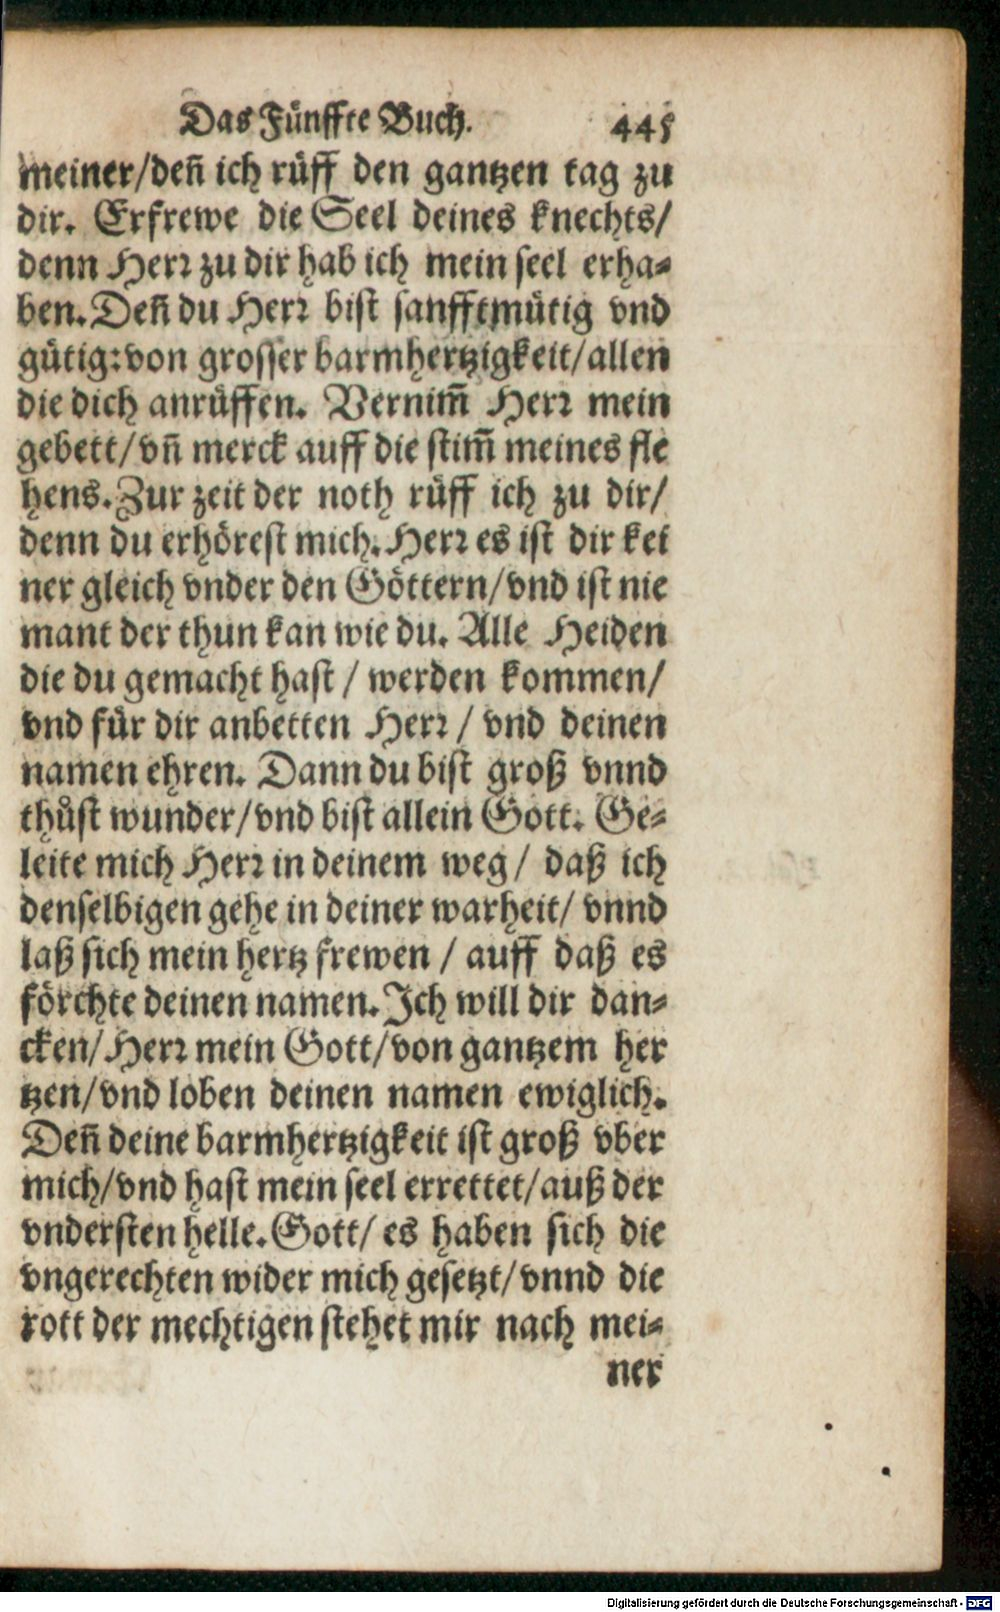 Das Fünffte Buch. 445
meiner/deñ ich rüff den gantzen tag zu
dir. Erfrewe die Seel deines knechts/
denn Herꝛ zu dir hab ich mein seel erha-
ben. Deñ du Herꝛ bist sanfftmütig vnd
gütig: von grosser barmhertzigkeit/allen
die dich anrüffen. Vernim̃ Herꝛ mein
gebett/vñ merck auff die stim̃ meines fle
hens. Zur zeit der noth rüff ich zu dir/
denn du erhörest mich. Herꝛ es ist dir kei
ner gleich vnder den Göttern/vnd ist nie
mant der thun kan wie du. Alle Heiden
die du gemacht hast / werden kommen/
vnd für dir anbetten Herꝛ / vnd deinen
namen ehren. Dann du bist groß vnnd
thůst wunder/vnd bist allein Gott. Ge-
leite mich Herꝛ in deinem weg / daß ich
denselbigen gehe in deiner warheit/ vnnd
laß sich mein hertz frewen / auff daß es
förchte deinen namen. Ich will dir dan-
cken/Herꝛ mein Gott/von gantzem her
tzen/vnd loben deinen namen ewiglich.
Deñ deine barmhertzigkeit ist groß vber
mich/vnd hast mein seel errettet/auß der
vndersten helle. Gott/ es haben sich die
vngerechten wider mich gesetzt/vnnd die
rott der mechtigen stehet mir nach mei-
ner
Digitalisierung gefördert durch die Deutsche Forschungsgemeinschaft - DFG